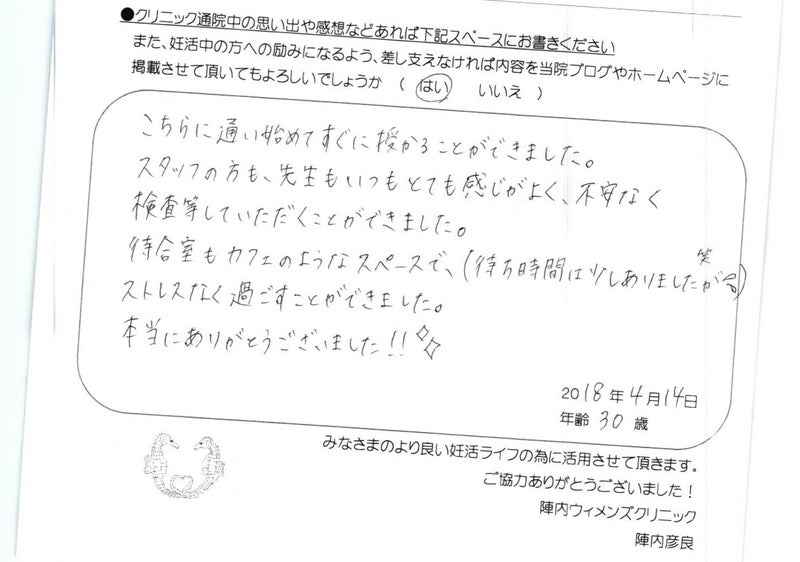 ●クリニック通院中の思い出や感想などあれば下記スペースにお書きください
また、妊活中の方への励みになるよう、差し支えなければ内容を当院ブログやホームページに
掲載させて頂いてもよろしいでしょうか ( はい いいえ )
こちらに通い始めてすぐに授かることができました。
スタッフの方も、先生もいつもとても感じがよく、不安なく
検査等していただくことができました。
待合室もカフェのようなスペースで、(待ち時間は少しありましたが笑)
ストレスなく過ごすことができました。
本当にありがとうございました!!
2018年4月14日
年齢 30 歳
みなさまのより良い妊活ライフの為に活用させて頂きます。
ご協力ありがとうございました!
陣内ウィメンズクリニック
陣内彦良